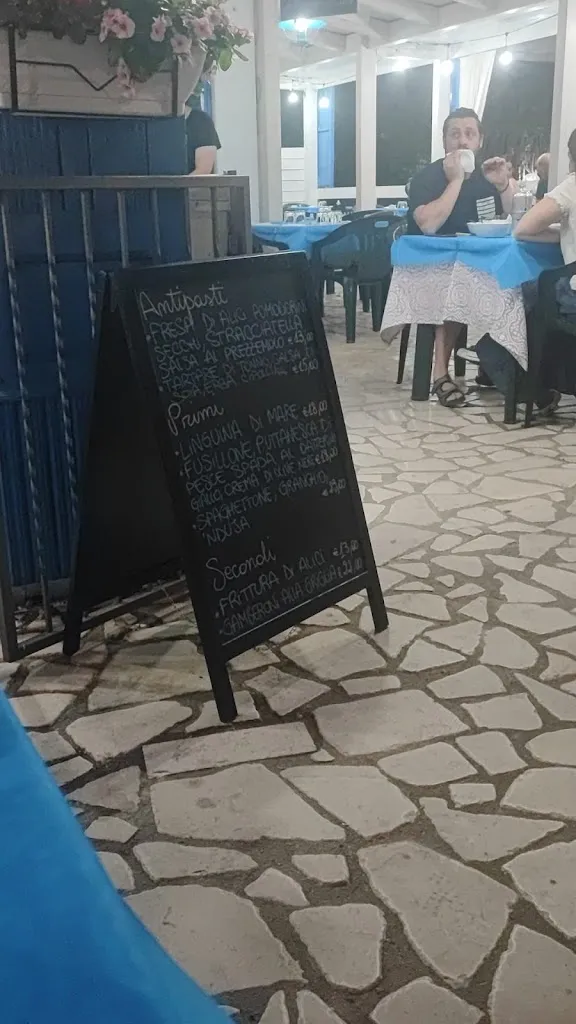 Antipasti
• FRESA DI ALICI, POMODORINI
SECCHI STRACCIATELLA
SALSA AL PREZZEMOLO
• TARTARE DI TONNO, SALSA DI
Primi
• LINGUINA DI MARE €18,00
• FUSILLONE, PUTTANESCA DI
PESCE SPADA AL DATTERINO
GIALLO CREMA DI OLIVE NERE
• SPAGHETTONE, GRANCHIO,
'NDUJA
Secondi
• FRITTURA DI ALICI €13,00
• GAMBERONI ALLA GRIGLIA €22,00